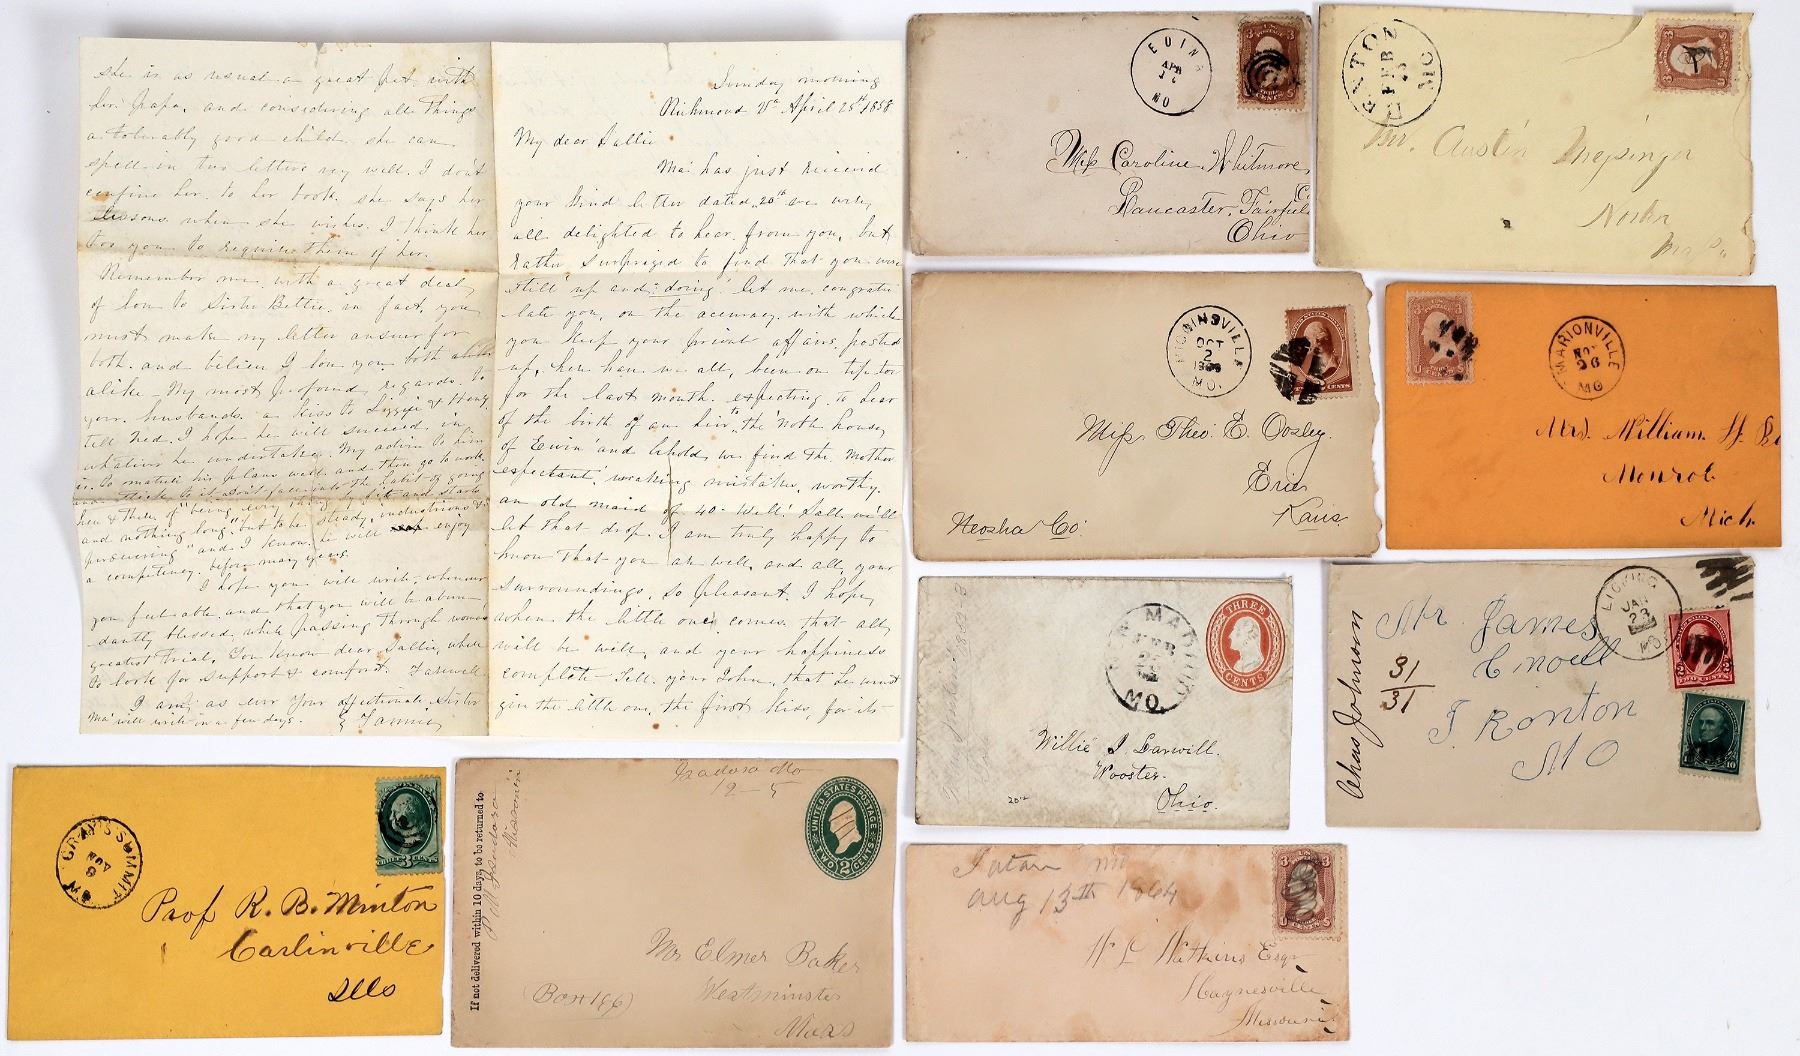 she is as usual a great pet with
her papa, and considering all things
a tolerably good child she can
spell in two letters very well. I don't
confine her to her book she says her
lessons when she wishes. I think her
too young to require them of her.
Remember me with a great deal
of love to Sister Bettie in fact, you
must make my letter answer for
both and believe I love you both
alike My most profound regards to
your husbands. a kiss to Lizzie & Henry
tell Ned. I hope he will succeed in
whatever he undertakes. My advice to him
is to mature his plans well and then go to work
and stick to it don't fall into the habit of going
here & there of "being every thing by fits and starts
and nothing long" but to be "steady, industrious &
persevering" and I know he will enjoy
a competency before many years.
I hope you will write whenever
you feel able and that you will be abun-
dantly blessed while passing through woman's
greatest trial, You know dear Sallie, where
to look for support & comfort. Farewell
I am, as ever Your affectionate Sister
Ma' will write in a few days. Fannie
Sunday morning
Richmond Va April 25th 1858
My dear Sallie
Ma' has just received
your kind letter dated 20th we were
all delighted to hear from you, but
rather surprized to find that you were
still 'up and doing' let me congratu-
late you, on the accuracy with which
you keep your private affairs posted
up, here have we all, been on tip toe
for the last month expecting to hear
of the birth of an heir to the 'noth house
of Ewin' and behold we find the Mother
expectant, making mistakes, worthy
an old maid of 40. Well! Sall. we'll
let that drop. I am truly happy to
know that you are well, and all, your
surroundings, so pleasant. I hope
when the little one comes that all
will be well, and your happiness
complete Tell your John, that he must
give the little one, the first kiss, for its
EDINA
APR
MO
U.S. POSTAGE
3 3
THREE CENTS
Miss Caroline Whitmore
Lancaster, Fairfield
Co
Ohio
BENTON
FEB
MO
Mr. Austin Messinger
Norton
Mass.
HIGGINSVILLE
OCT
2
MO.
CENTS
Miss Theo. E. Cosley
Erie
Kans
Neosho Co.
MARIONVILLE
NOV
26
MO
3 3
U S
Mrs. William H.
Monroe
Mich.
NEW MADRID
FEB
MO.
THREE
CENTS
Willie J. Larwill.
Wooster.
Ohio.
LICKING
JAN
23
MO
TWO CENTS
10
Chas Johnson
31
31
Mr James
Enoell
Ironton
MO
GRAY'S SUMMIT
NOV
8
MO
THREE 3 CENTS
Prof R. B. Minton
Carlinville
Ills
If not delivered within 10 days, to be returned to
Isadora
Missouri
Isadora Mo
12 - 5
UNITED STATES POSTAGE
TWO 2 CENTS
Mr Elmer Baker
(Box 196) Westminster
Mass
Tatan mo
aug 13th 1864
3 3
U S
W L Watkins Esqr
Haynesville
Missouri